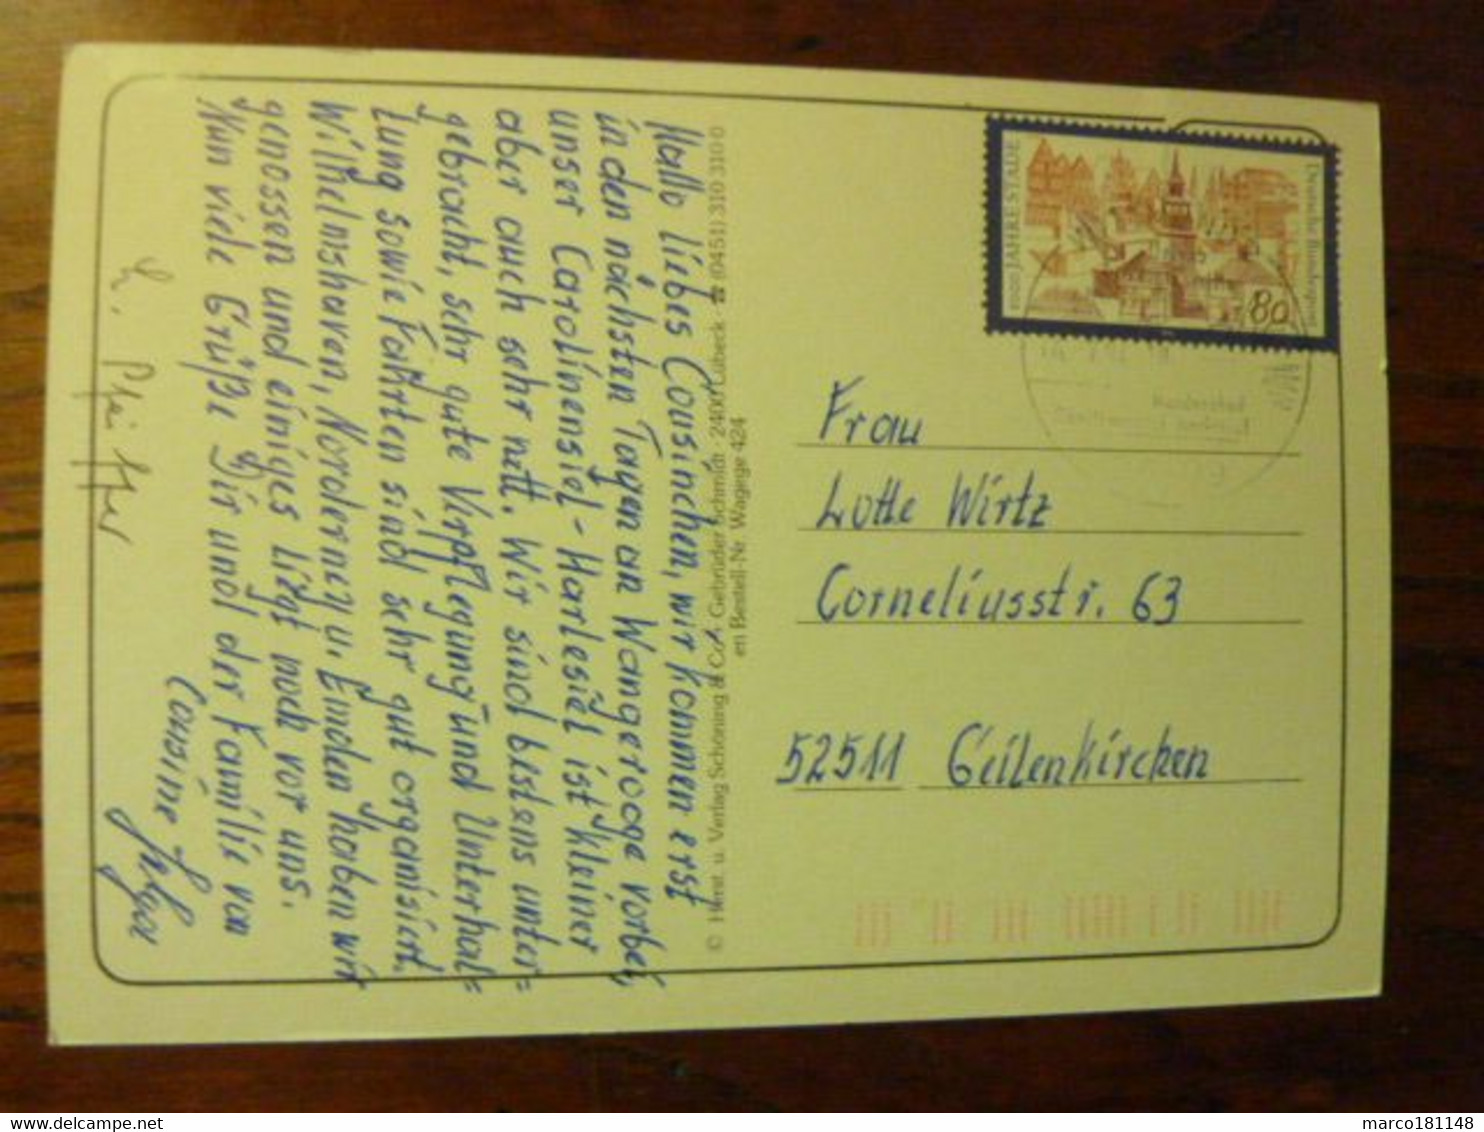 Hallo liebes Cousinchen, wir kommen erst
in den nächsten Tagen an Wangerooge vorbei,
unser Carolinensiel-Harlesiel ist kleiner
aber auch sehr nett. Wir sind bestens unter=
gebracht, sehr gute Verpflegung und Unterhal=
tung sowie Fahrten sind sehr gut organisiert.
Wilhelmshaven, Norderney u. Emden haben wir
genossen und einiges liegt noch vor uns.
Nun viele Grüße Dir und der Familie von
Cousine Helga
L. Pfeiffer
© Herst. u. Verlag Schöning & Co + Gebrüder Schmidt · 2400 Lübeck · ☎ (0451) 310 310 0
en Bestell-Nr. Wagege 424
2000 JAHRE STADE
Deutsche Bundespost
80
Frau
Lotte Wirtz
Corneliusstr. 63
52511 Geilenkirchen
marco181148